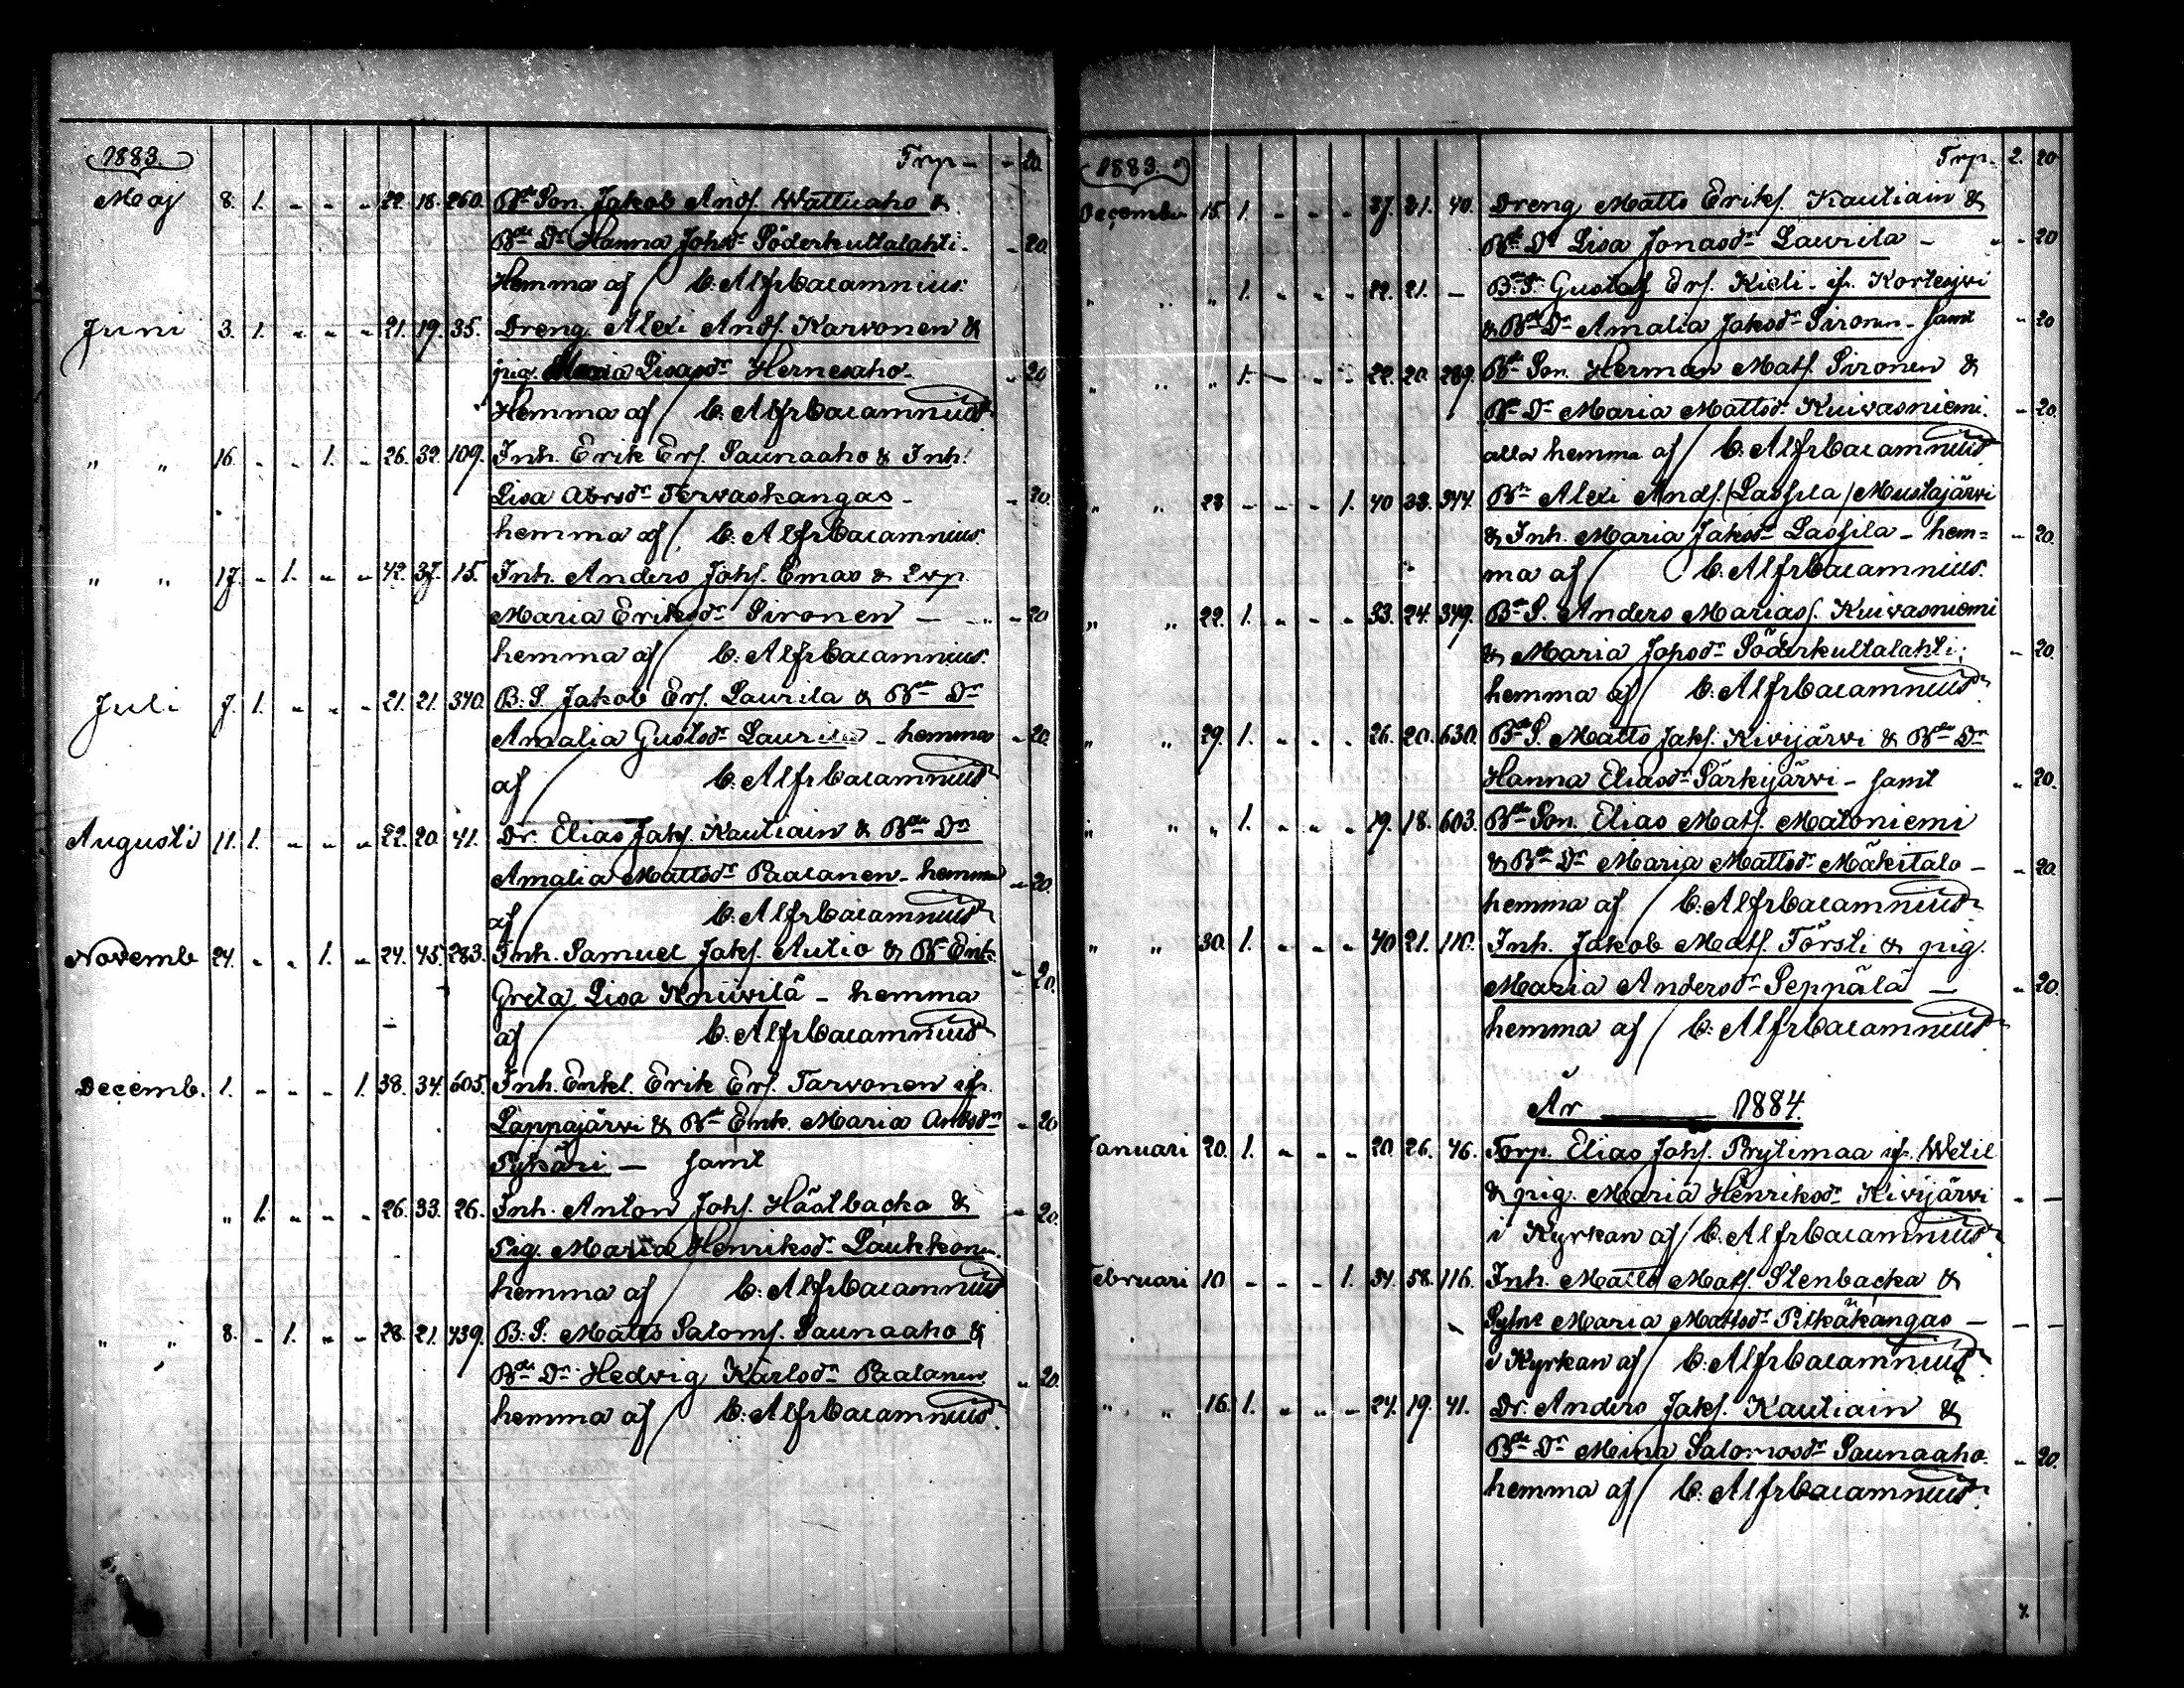 1883. Trp - - 20.
Maj 8. 1. - - - 22. 18. 260. Bde Son. Jakob Ands. Wattuaho &
Bde Dr Hanna Johsdr Söderkultalahti. - 20.
Hemma af / C. Alfr Cajamnius.
Juni 3. 1. - - - 21. 19. 35. Dreng Alexi Ands. Karvonen &
pig. Maria Lisasdr Hernesaho - - 20
Hemma af / C. Alfr Cajamnius.
" " 16. - - 1. - 26. 32. 109. Inh. Erik Ers. Saunaaho & Inh.
Lisa Abrsdr Tervaskangas - - 20.
hemma af / C. Alfr Cajamnius.
" " 17. - 1. - - 42. 37. 15. Inh. Anders Johs. Emas &
Maria Eriksdr Sironen - - 20
hemma af / C. Alfr Cajamnius.
Juli 7. 1. - - - 21. 21. 340. B. S. Jakob Ers. Laurila & Bde Dr
Amalia Gustsdr Laurila - hemma - 20.
af / C. Alfr Cajamnius
Augusti 11. 1. - - - 22. 20. 41. Dr. Elias Jaks. Kautiain & Bde Dr
Amalia Mattsdr Paalanen - hemma - 20.
af / C. Alfr Cajamnius
Novemb 24. - - 1. - 24. 45. 283. Inh. Samuel Jaks. Autio & Bde Enk.
Greta Lisa Kniivilä - hemma - 20.
af / C. Alfr Cajamnius
Decemb. 1. - - - 1. 38. 34. 605. Inh. Enkl. Erik Ers. Tarvonen ifr.
Lappajärvi & Bde Enk. Maria Andsdr - 20
Pykäri - samt
" 1. - - - 26. 33. 26. Inh. Anton Johs. Hästbacka & - 20.
Pig. Maria Henriksdr Laukkon.
hemma af / C. Alfr Cajamnius
" " 8. - 1. - - 28. 21. 439. B. S. Matts Saloms. Saunaaho &
Bde Dr Hedvig Karlsdr Paalanen - 20.
hemma af / C. Alfr Cajamnius.
1883. Trp. 2. 20
December 15. 1. - - - 37. 21. 40. Dreng Matts Eriks. Kautiain &
Bde Dr Lisa Jonasdr Laurila - - 20
" " " 1. - - - 22. 21. - B. S. Gustaf Ers. Kieli - ifr. Kortesjrvi
& Bde Dr Amalia Jaksdr Sironen - samt - 20
" " " 1. - - - 22. 20. 289. Bde Son. Herman Mats. Sironen &
Bde Dr Maria Mattsdr Kuivasniemi. - 20.
alla hemma af / C. Alfr Cajamnius
" " 23 - - - 1. 40 33. 344. Bde Alexi Ands. (Lassila) Mustajärvi
& Inh. Maria Jaksdr Lassila - hem= - 20.
ma af / C. Alfr Cajamnius.
" " 22. 1. - - - 33. 24. 349. Bde S. Anders Marias. Kuivasniemi
& Maria Johsdr Söderkultalahti. - 20.
hemma af / C. Alfr Cajamnius
" " 29. 1. - - - 26. 20. 630. Bde S. Matts Jaks. Kivijärvi & Bde Dr
Hanna Eliasdr Särkijärvi - samt - 20.
" " " 1. - - - 19. 18. 603. Bde Son. Elias Mats. Matoniemi
& Bde Dr Maria Mattsdr Mäkitalo - - 20.
hemma af / C. Alfr Cajamnius
" " 30. 1. - - - 40 21. 110. Inh. Jakob Mats. Försti & pig.
Maria Andersdr Seppälä - - 20.
hemma af / C. Alfr Cajamnius
År 1884.
Januari 20. 1. - - - 20 26. 46. Torp. Elias Johs. Prytimaa ifr. Wetil
& pig. Maria Henriksdr Kivijärvi - -
i Kyrkan af / C. Alfr Cajamnius
Februari 10 - - - 1. 34. 58. 116. Inh. Matts Mats. Stenbacka &
Maria Mattsdr Pitkäkangas - - -
i Kyrkan af / C. Alfr Cajamnius
" " 16. 1. - - - 24. 19. 41. Dr. Anders Jaks. Kautiain &
Bde Dr Mina Salomosdr Saunaaho. - 20.
hemma af / C. Alfr Cajamnius